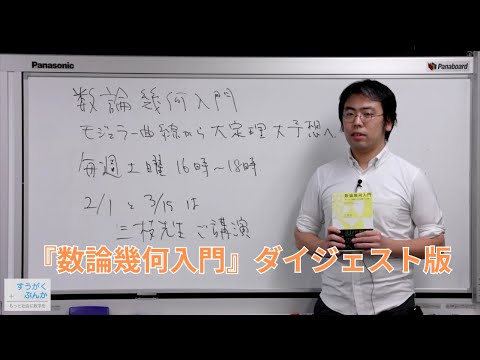 Panasonic
Panaboard
数論幾何入門
モジュラー曲線から大定理・大予想へ
毎週土曜 16時〜18時
2/1 と 3/15 は
三枝先生 ご講演
数論幾何入門
『数論幾何入門』ダイジェスト版
すうがく
ぶんか